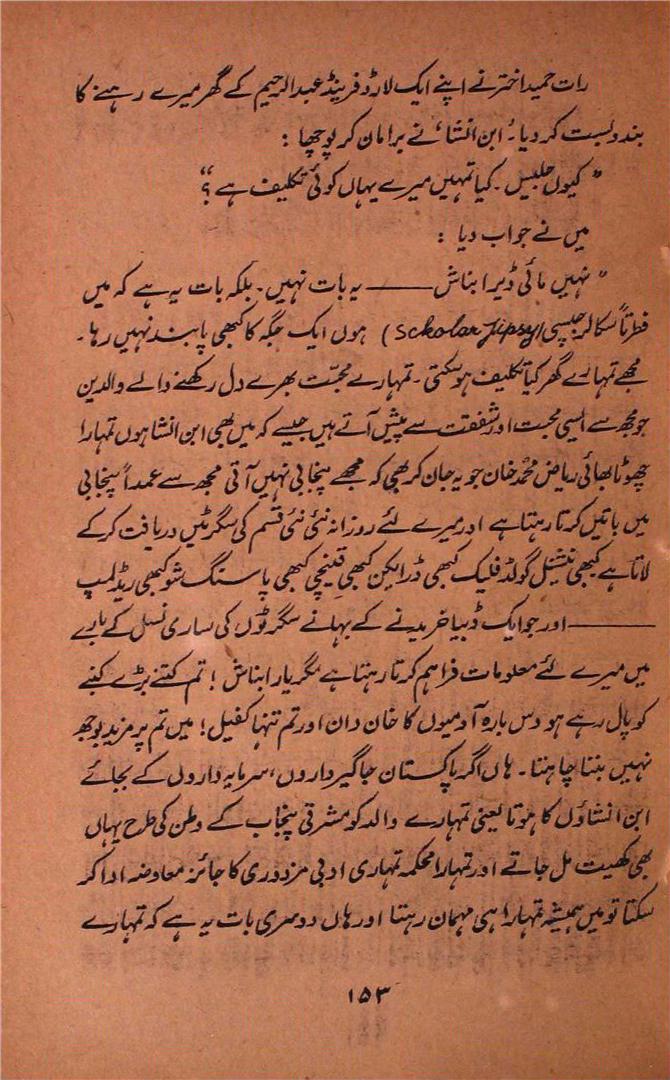 رات حمید اختر نے اپنے ایک لارڈ فرینڈ عبدالرحیم کے گھر میرے رہنے کا
بندوبست کر دیا۔ ابن انشاء نے برا مان کر پوچھا :
” کیوں جلبیس ۔ کیا تمہیں میرے یہاں کوئی تکلیف ہے ؟“
میں نے جواب دیا :
” نہیں مائی ڈیر ابناش —— یہ بات نہیں ۔ بلکہ بات یہ ہے کہ میں
فطرتاً سکالر جپسی (Scholar Jipsy) ہوں ایک جگہ کا کبھی پابند نہیں رہا ۔
مجھے تمہارے گھر کیا تکلیف ہو سکتی ۔ تمہارے محبت بھرے دل رکھنے والے والدین
جو مجھ سے ایسی محبت اور شفقت سے پیش آتے ہیں جیسے کہ میں بھی ابن انشا ہوں تمہارا
چھوٹا بھائی ریاض محمد خان جو یہ جان کر بھی کہ مجھے پنجابی نہیں آتی مجھ سے عمداً پنجابی
میں باتیں کرتا رہتا ہے اور میرے لئے روزانہ نئی نئی قسم کی سگرٹیں دریافت کر کے
لاتا ہے کبھی نیشنل گولڈ فلیک کبھی ڈرایکن کبھی قینچی کبھی پاسنگ شو کبھی ریڈ لمپ
—— اور جو ایک ڈبیا خریدنے کے بہانے سگرٹوں کی ساری نسل کے بارے
میں میرے لئے معلومات فراہم کرتا رہتا ہے مگر یار ابناش ! تم کتنے بڑے کنبے
کو پال رہے ہو دس بارہ آدمیوں کا خان دان اور تم تنہا کفیل ! میں تم پر مزید بوجھ
نہیں بننا چاہتا ۔ ہاں اگر پاکستان جاگیرداروں، سرمایہ داروں کے بجائے
ابن انشاؤں کا ہوتا یعنی تمہارے والد کو مشرقی پنجاب کے وطن کی طرح یہاں
بھی کھیت مل جاتے اور تمہارا محکمہ تمہاری ادبی مزدوری کا جائز معاوضہ ادا کر
سکتا تو میں ہمیشہ تمہارا ہی مہمان رہتا اور ہاں دوسری بات یہ ہے کہ تمہارے
۱۵۳